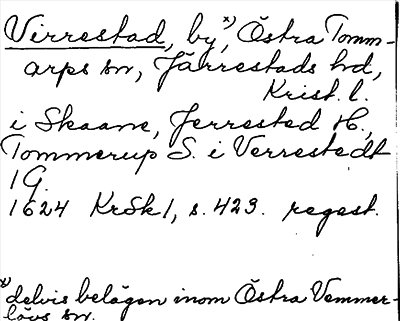 Virrestad, by,ˣ⁾ Östra Tomm-
arps sn, Järrestads hd,
Krist. l.
i Skaane, Jerrested H.,
Tommerup S. i Verrestedt
1 G.
1624 KrSk 1, s. 423. regest.
ˣ⁾ delvis belägen inom Östra Vemmer-
lövs sn.